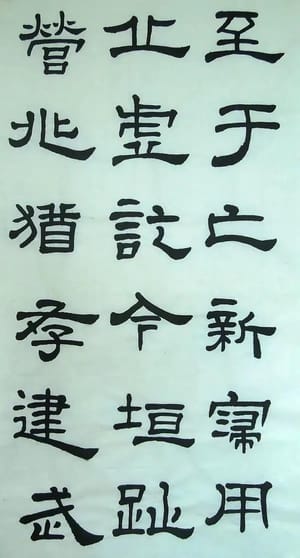 至于亡新寖用
丘虛訖今垣趾
營兆猶存建武